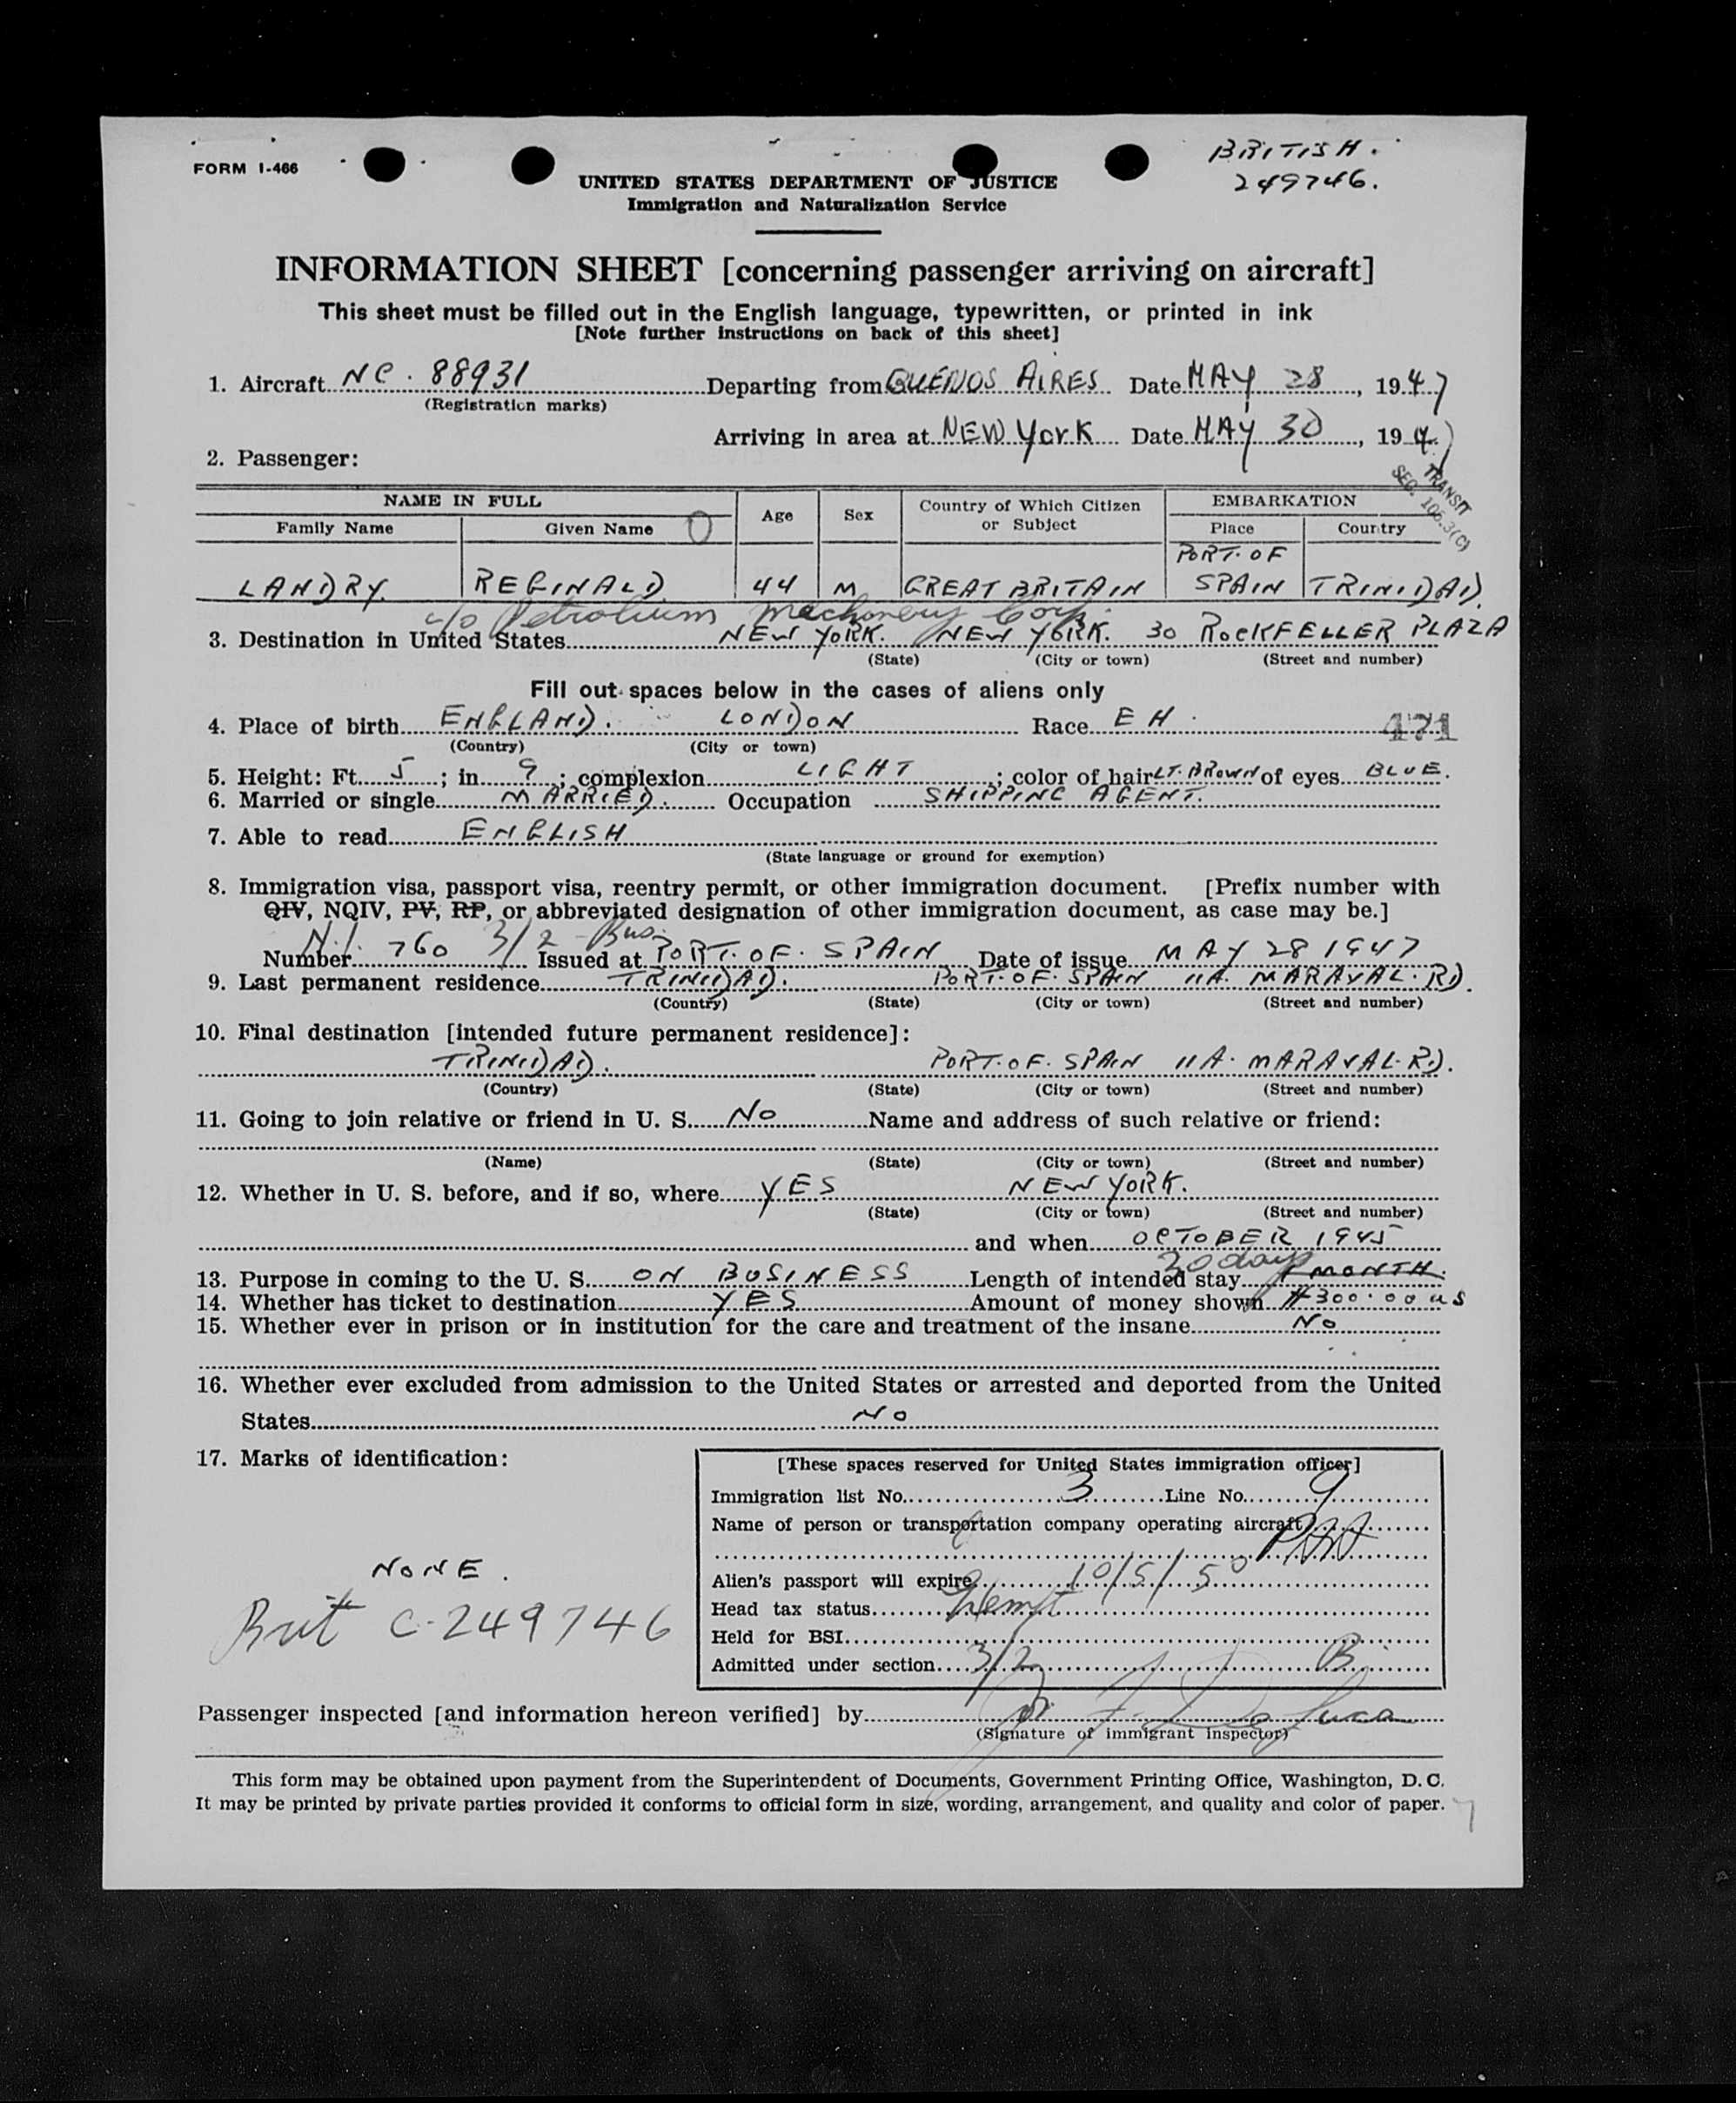 BRITISH.
FORM I-466
249746.
UNITED STATES DEPARTMENT OF JUSTICE
Immigration and Naturalization Service
INFORMATION SHEET [concerning passenger arriving on aircraft]
This sheet must be filled out in the English language, typewritten, or printed in ink
[Note further instructions on back of this sheet]
1. Aircraft NC. 88931 Departing from BUENOS AIRES Date MAY 28, 1947
(Registration marks)
Arriving in area at NEW York Date MAY 30, 1947
2. Passenger:
TRANSIT
SEC. 105.3(C)
NAME IN FULL Age Sex Country of Which Citizen or Subject EMBARKATION
Family Name Given Name Place Country
PORT. OF
LANDRY. REGINALD 44 M GREAT BRITAIN SPAIN TRINIDAD.
c/o Petroleum Machinery Corp.
3. Destination in United States NEW YORK. NEW YORK. 30 ROCKFELLER PLAZA
(State) (City or town) (Street and number)
Fill out spaces below in the cases of aliens only
4. Place of birth ENGLAND. LONDON Race EH. 471
(Country) (City or town)
5. Height: Ft. 5; in. 9; complexion LIGHT; color of hair LT. BROWN of eyes BLUE.
6. Married or single MARRIED. Occupation SHIPPING AGENT.
7. Able to read ENGLISH
(State language or ground for exemption)
8. Immigration visa, passport visa, reentry permit, or other immigration document. [Prefix number with
QIV, NQIV, PV, RP, or abbreviated designation of other immigration document, as case may be.]
N.I. 3/2 - Bus.
Number 760 Issued at PORT. OF. SPAIN Date of issue MAY 28 1947
9. Last permanent residence TRINIDAD. PORT. OF. SPAIN 11A. MARAVAL. RD.
(Country) (State) (City or town) (Street and number)
10. Final destination [intended future permanent residence]:
TRINIDAD. PORT. OF. SPAIN 11A. MARAVAL. RD.
(Country) (State) (City or town) (Street and number)
11. Going to join relative or friend in U. S. No Name and address of such relative or friend:
(Name) (State) (City or town) (Street and number)
12. Whether in U. S. before, and if so, where YES NEW YORK.
(State) (City or town) (Street and number)
and when OCTOBER 1945
30 days
13. Purpose in coming to the U. S. ON BUSINESS Length of intended stay 1 MONTH.
14. Whether has ticket to destination YES Amount of money shown $300.00 US
15. Whether ever in prison or in institution for the care and treatment of the insane No
16. Whether ever excluded from admission to the United States or arrested and deported from the United
States No
17. Marks of identification:
NONE.
Brit C-249746
[These spaces reserved for United States immigration officer]
Immigration list No. 3 Line No. 9
Name of person or transportation company operating aircraft PAA
Alien's passport will expire 10/5/50
Head tax status Exempt
Held for BSI
Admitted under section 3/2 B
Passenger inspected [and information hereon verified] by
(Signature of immigrant inspector)
This form may be obtained upon payment from the Superintendent of Documents, Government Printing Office, Washington, D. C.
It may be printed by private parties provided it conforms to official form in size, wording, arrangement, and quality and color of paper.